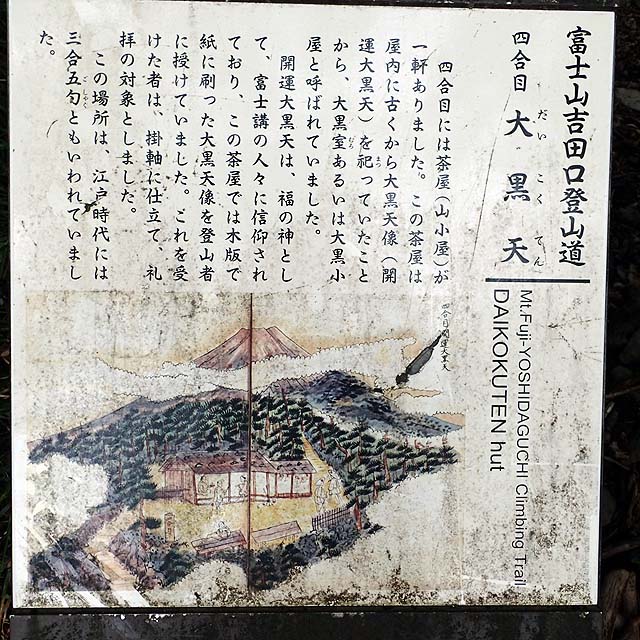 富士山吉田口登山道
四合目 大黒天
だいこくてん
Mt.Fuji-YOSHIDAGUCHI Climbing Trail
DAIKOKUTEN hut
四合目には茶屋(山小屋)が
一軒ありました。この茶屋は
屋内に古くから大黒天像(開
運大黒天)を祀っていたこと
まつ
から、大黒室あるいは大黒小
むろ
屋と呼ばれていました。
開運大黒天は、福の神とし
て、富士講の人々に信仰され
ており、この茶屋では木版で
紙に刷った大黒天像を登山者
に授けていました。これを受
けた者は、掛軸に仕立て、礼
拝の対象としました。
この場所は、江戸時代には
三合五勺ともいわれていまし
ごしゃく
た。
四合目開運大黒天